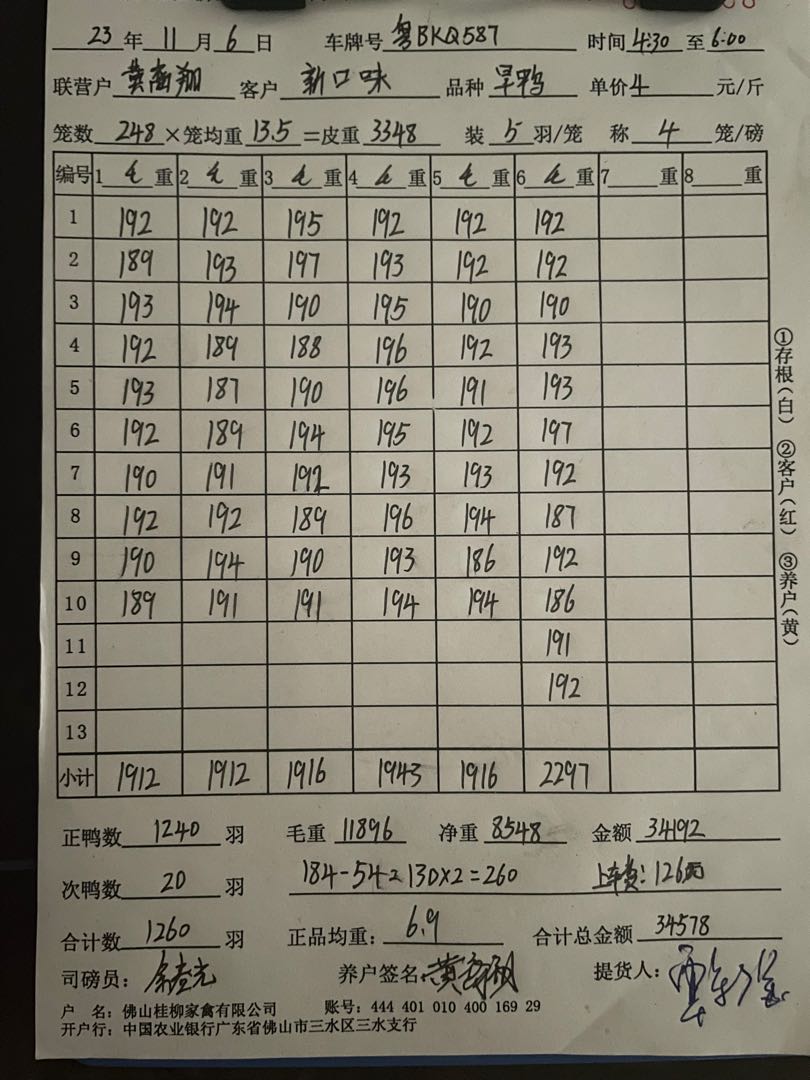 23 年 11 月 6 日 车牌号 粤BKQ587 时间 4:30 至 6:00
联营户 黄 翔 客户 新口味 品种 旱鸭 单价 4 元/斤
笼数 248 ×笼均重 13.5 =皮重 3348 装 5 羽/笼 称 4 笼/磅
编号 1 毛 重 2 毛 重 3 毛 重 4 毛 重 5 毛 重 6 毛 重 7 重 8 重
1 192 192 195 192 192 192
2 189 193 197 193 192 192
3 193 194 190 195 190 190
4 192 189 188 196 192 193
5 193 187 190 196 191 193
6 192 189 194 195 192 197
7 190 191 192 193 193 192
8 192 192 189 196 194 187
9 190 194 190 193 186 192
10 189 191 191 194 194 186
11 191
12 192
13
小计 1912 1912 1916 1943 1916 2297
正鸭数 1240 羽 毛重 11896 净重 8548 金额 34192
次鸭数 20 羽 184-54=130×2=260 上车费:126元
合计数 1260 羽 正品均重: 6.9 合计总金额 34578
司磅员: 养户签名: 黄 翔 提货人:
户 名: 佛山桂柳家禽有限公司 账号: 444 401 010 400 169 29
开户行: 中国农业银行广东省佛山市三水区三水支行
①存根(白) ②客户(红) ③养户(黄)